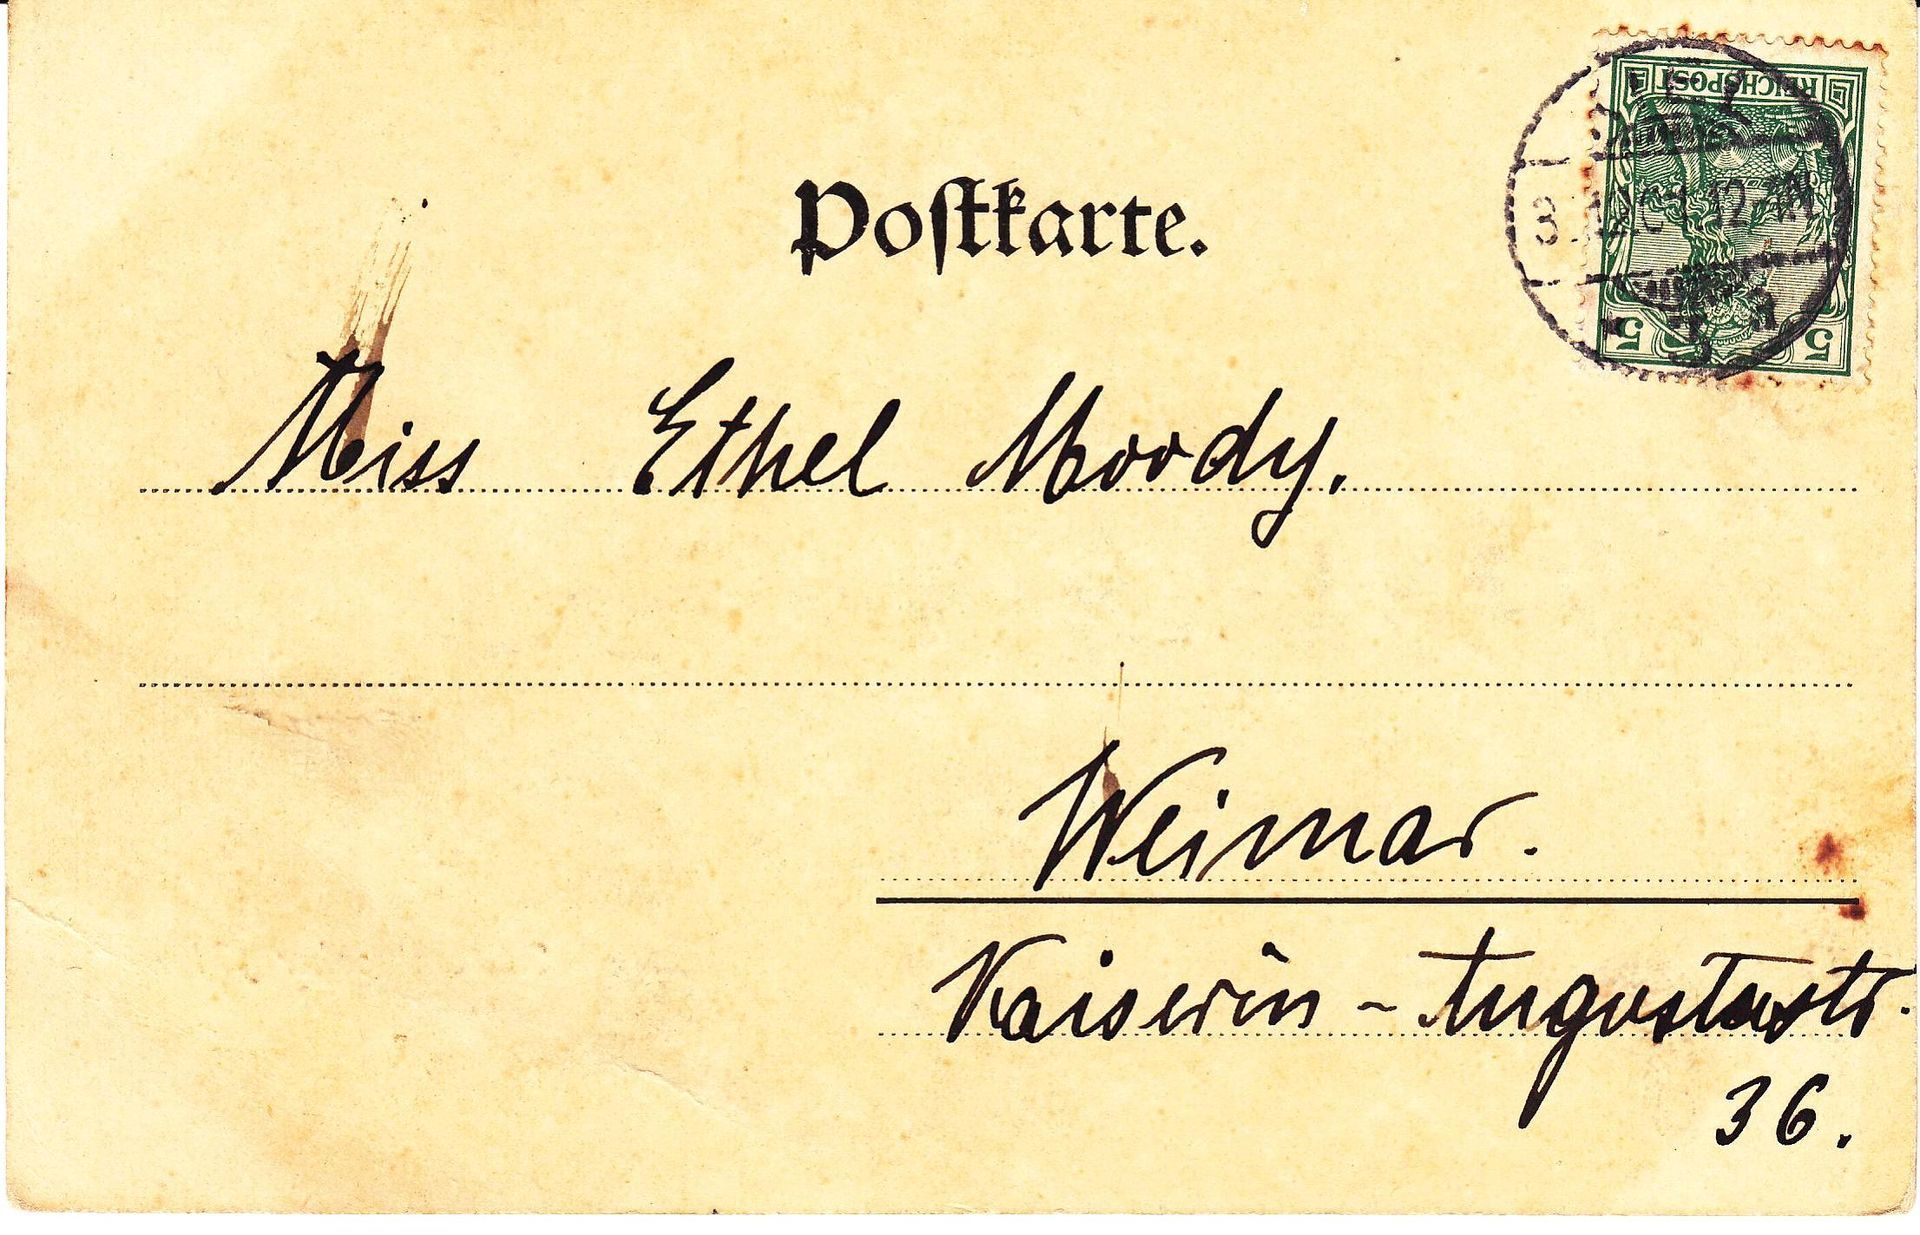 REICHSPOST
5 5
Postkarte.
Miss Ethel Moody.
Weimar.
Kaiserin-Augustastr.
36.